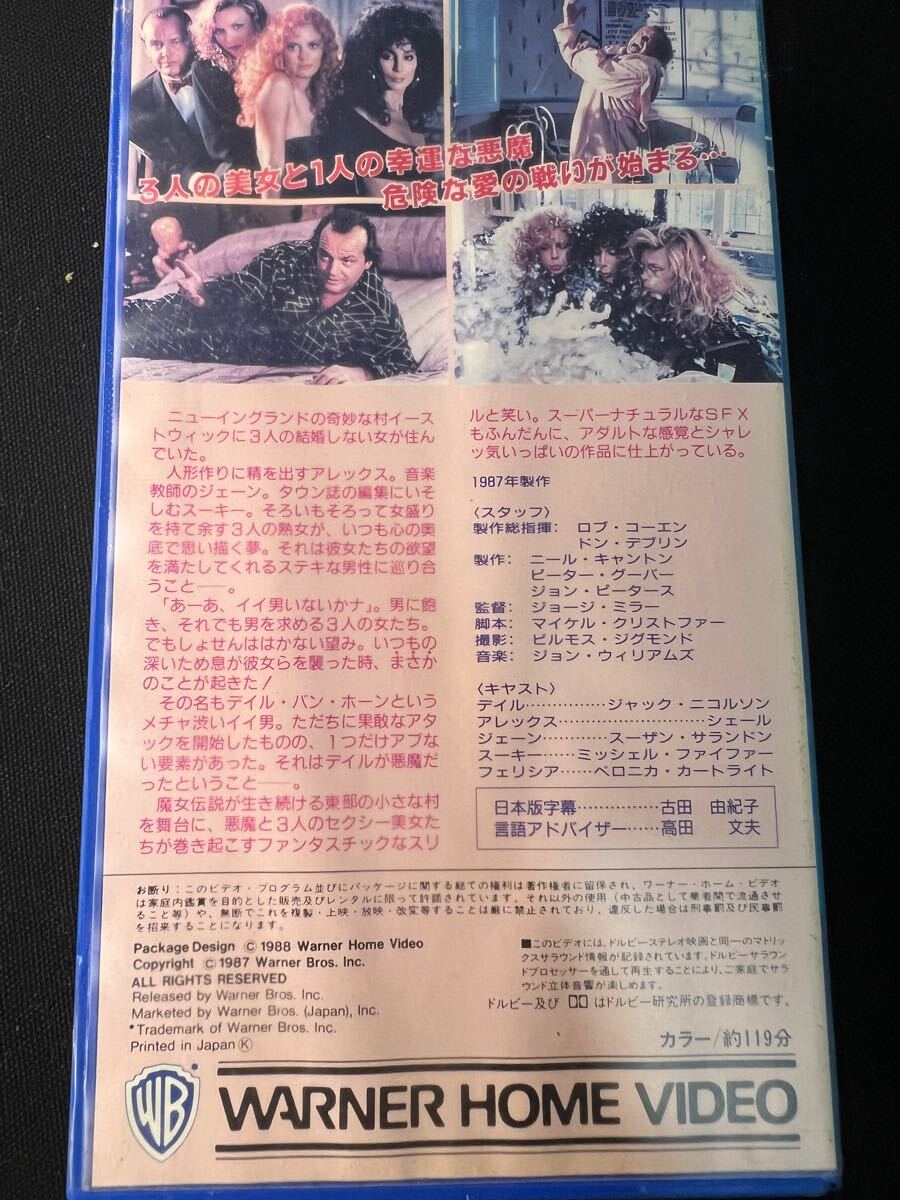 3人の美女と1人の幸運な悪魔
危険な愛の戦いが始まる…
ニューイングランドの奇妙な村イース
トウィックに3人の結婚しない女が住ん
でいた。
人形作りに精を出すアレックス。音楽
教師のジェーン。タウン誌の編集にいそ
しむスーキー。そろいもそろって女盛り
を持て余す3人の熟女が、いつも心の奥
底で思い描く夢。それは彼女たちの欲望
を満たしてくれるステキな男性に巡り合
うこと──。
「あーあ、イイ男いないかナ」。男に飽
き、それでも男を求める3人の女たち。
でもしょせんははかない望み。いつもの
深いため息が彼女らを襲った時、まさか
のことが起きた！
その名もデイル・バン・ホーンという
メチャ渋いイイ男。ただちに果敢なアタ
ックを開始したものの、1つだけアブな
い要素があった。それはデイルが悪魔だ
ったということ──。
魔女伝説が生き続ける東部の小さな村
を舞台に、悪魔と3人のセクシー美女た
ちが巻き起こすファンタスチックなスリ
ルと笑い。スーパーナチュラルなSFX
もふんだんに、アダルトな感覚とシャレ
ッ気いっぱいの作品に仕上がっている。
1987年製作
〈スタッフ〉
製作総指揮： ロブ・コーエン
ドン・デブリン
製作： ニール・キャントン
ピーター・グーバー
ジョン・ピータース
監督： ジョージ・ミラー
脚本： マイケル・クリストファー
撮影： ビルモス・ジグモンド
音楽： ジョン・ウィリアムズ
〈キャスト〉
デイル……………ジャック・ニコルソン
アレックス………………………シェール
ジェーン…………スーザン・サランドン
スーキー……ミッシェル・ファイファー
フェリシア……ベロニカ・カートライト
日本版字幕……………古田 由紀子
言語アドバイザー……高田 文夫
お断り：このビデオ・プログラム並びにパッケージに関する総ての権利は著作権者に留保され、ワーナー・ホーム・ビデオ
は家庭内鑑賞を目的とした販売及びレンタルに限って許諾されています。それ以外の使用（中古品として業者間で流通させ
ること等）や、無断でこれを複製・上映・放映・改変等することは厳に禁止されており、違反した場合は刑事罰及び民事罰
を招来することになります。
Package Design © 1988 Warner Home Video
Copyright © 1987 Warner Bros. Inc.
ALL RIGHTS RESERVED
Released by Warner Bros. Inc.
Marketed by Warner Bros. (Japan), Inc.
*Trademark of Warner Bros. Inc.
Printed in Japan Ⓚ
■このビデオには、ドルビーステレオ映画と同一のマトリッ
クスサラウンド情報が記録されています。ドルビーサラウ
ンドプロセッサーを通して再生することにより、ご家庭でサラ
ウンド立体音響が楽しめます。
ドルビー及び はドルビー研究所の登録商標です。
カラー/約119分
WB*
WARNER HOME VIDEO